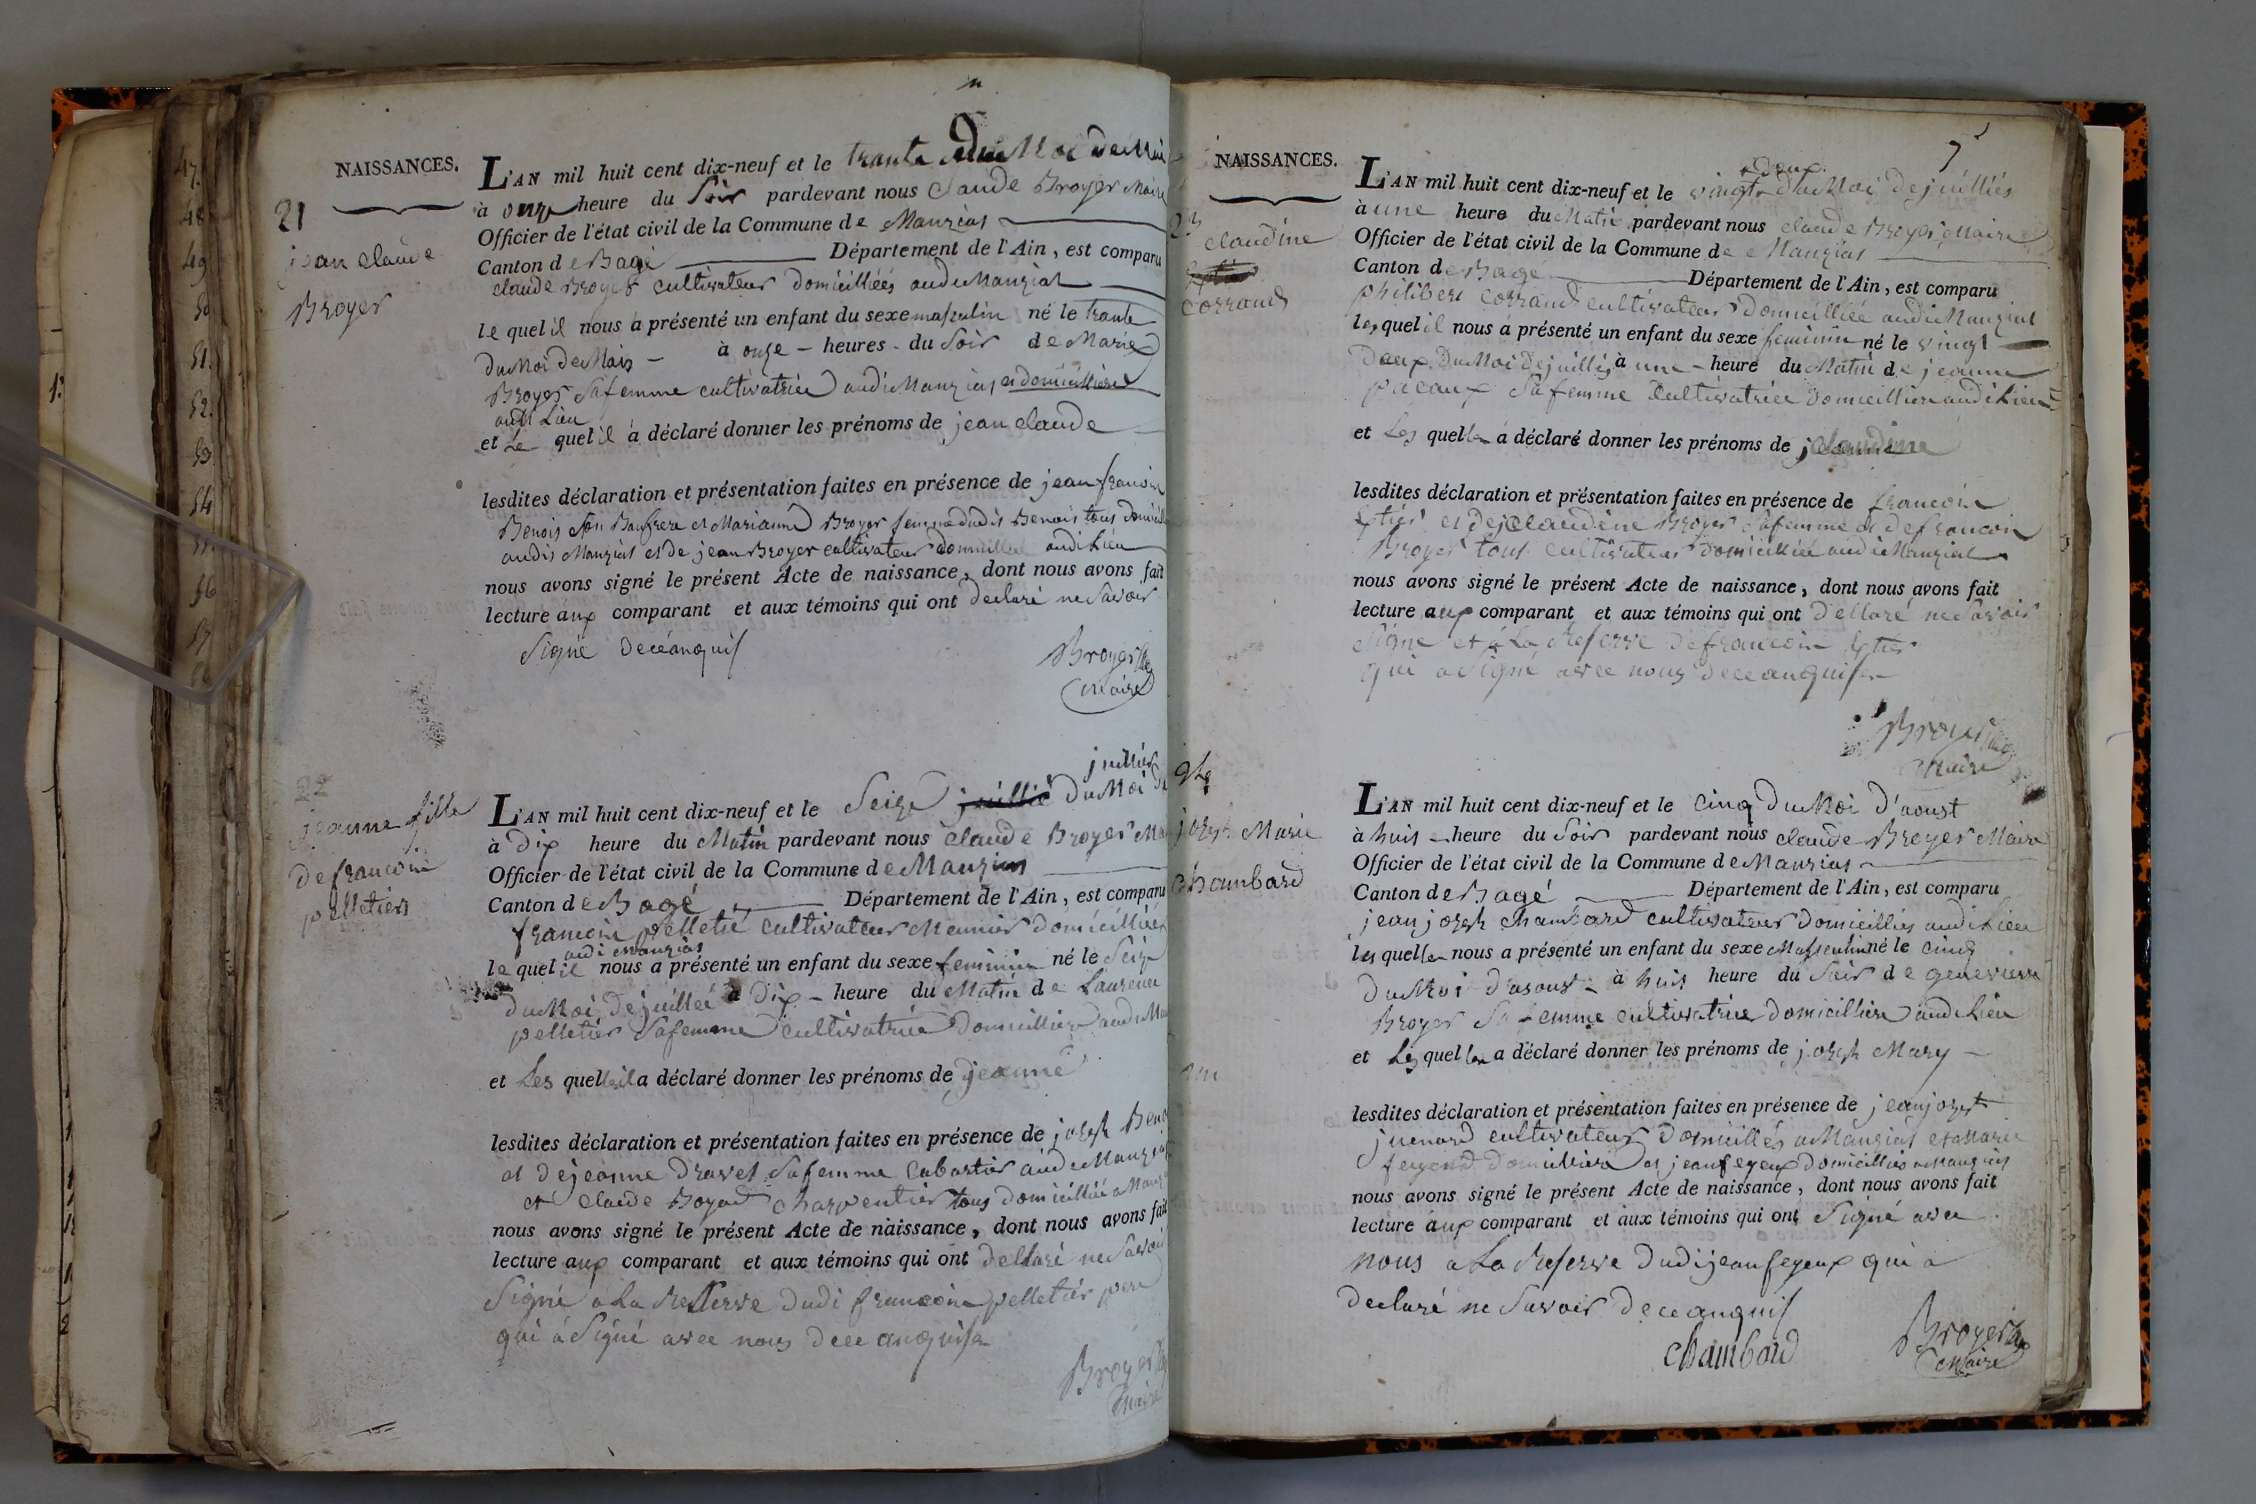 NAISSANCES.
21
jean claude
Broyer
L'AN mil huit cent dix-neuf et le trante du Moi de Mai
à onze heure du Soir pardevant nous Claude Broyer Maire
Officier de l'état civil de la Commune de Manziat
Canton de Bagé Département de l'Ain, est comparu
claude Broyer cultivateur domicilliéés audi Manziat
le quel il nous a présenté un enfant du sexe masculin né le trante
du Moi de Mais à onze heures du Soir de Marie
Broyer Safemme cultivatrice audi Manziat et domicilliere
audi Lieu
et Le quel il a déclaré donner les prénoms de jean claude
lesdites déclaration et présentation faites en présence de jean francoi
Benois Son Baufrere et Marianne Broyer femme dudit Benois tous
audis Manziat et de jean Broyer cultivateur domicillié audi Lieu
nous avons signé le présent Acte de naissance, dont nous avons fait
lecture aux comparant et aux témoins qui ont declaré ne Savoir
Signé deceanquis
Broyer
Maire
22
jeanne fille
de francoin
pelletier
juillier
L'AN mil huit cent dix-neuf et le Seize juillié du Moi de
à Dix heure du Matin pardevant nous Claude Broyer
Officier de l'état civil de la Commune de Manziat
Canton de Bagé Département de l'Ain, est comparu
francoin pelletié cultivateur Meunier domicilliéé
audi Manziat
le quel il nous a présenté un enfant du sexe feminin né le Seize
du Moi de juilleé à Dix heure du Matin de Laurence
pelletier Safemme cultivatrice Domicilliere
et Les quell il a déclaré donner les prénoms de jeanne
lesdites déclaration et présentation faites en présence de joseph
et de jeanne Dravet Safemme Cabartier audi
et Claude Boyat charpentier tous domicilliée a
nous avons signé le présent Acte de naissance, dont nous avons fait
lecture aux comparant et aux témoins qui ont dellaré ne Savoir
Signé a La Reserve dudi francoin pelletier pere
qui à Signé avec nous deceanquis
Broyer
Maire
NAISSANCES.
7
23
claudine
corrand
deux
L'AN mil huit cent dix-neuf et le vingt du Moi de juilliés
à une heure du Matin pardevant nous claude Broyer Maire
Officier de l'état civil de la Commune de Manziat
Canton de Bagé Département de l'Ain, est comparu
philibert corrand cultivateur domicilliée audi Manziat
les quel il nous a présenté un enfant du sexe feminin né le vingt
Deux Du Moi de juilliés à une heure du Matin de jeanne
paeaux Safemme Cultivatrice domicilliere audi Lieu
et Les quelle a déclaré donner les prénoms de claudine
lesdites déclaration et présentation faites en présence de francoin
et de claudine Broyer Safemme et de francoin
Broyer tous cultivateur domicilliée audi Manziat
nous avons signé le présent Acte de naissance, dont nous avons fait
lecture aux comparant et aux témoins qui ont dellaré ne Savoir
Signe et a La Reserve de francoin
qui a Signé avec nous deceanquis
Broyer
Maire
24
joseph Marie
Chambard
L'AN mil huit cent dix-neuf et le Cinq du Moi d'aoust
à huis heure du Soir pardevant nous claude Broyer Maire
Officier de l'état civil de la Commune de Manziat
Canton de Bagé Département de l'Ain, est comparu
jean joseph chambard cultivateur domicillies audi Lieu
les quelle nous a présenté un enfant du sexe Masculin né le cinq
du Moi d'aoust à huis heure du Soir de genevieve
Broyer Safemme cultivatrice domicilliere audi Lieu
et Les quelle a déclaré donner les prénoms de joseph Mary
lesdites déclaration et présentation faites en présence de jean joseph
juenard cultivateur domicillés a Manziat et Marie
domicilliere et jean feyeux domicilliés a Manziat
nous avons signé le présent Acte de naissance, dont nous avons fait
lecture aux comparant et aux témoins qui ont Signé avec
nous a La Reserve dudi jean feyeux qui a
declaré ne Savoir deceanquis
Chambard
Broyer
Maire
47.
48
49
50
51.
52.
53.
54
56
57